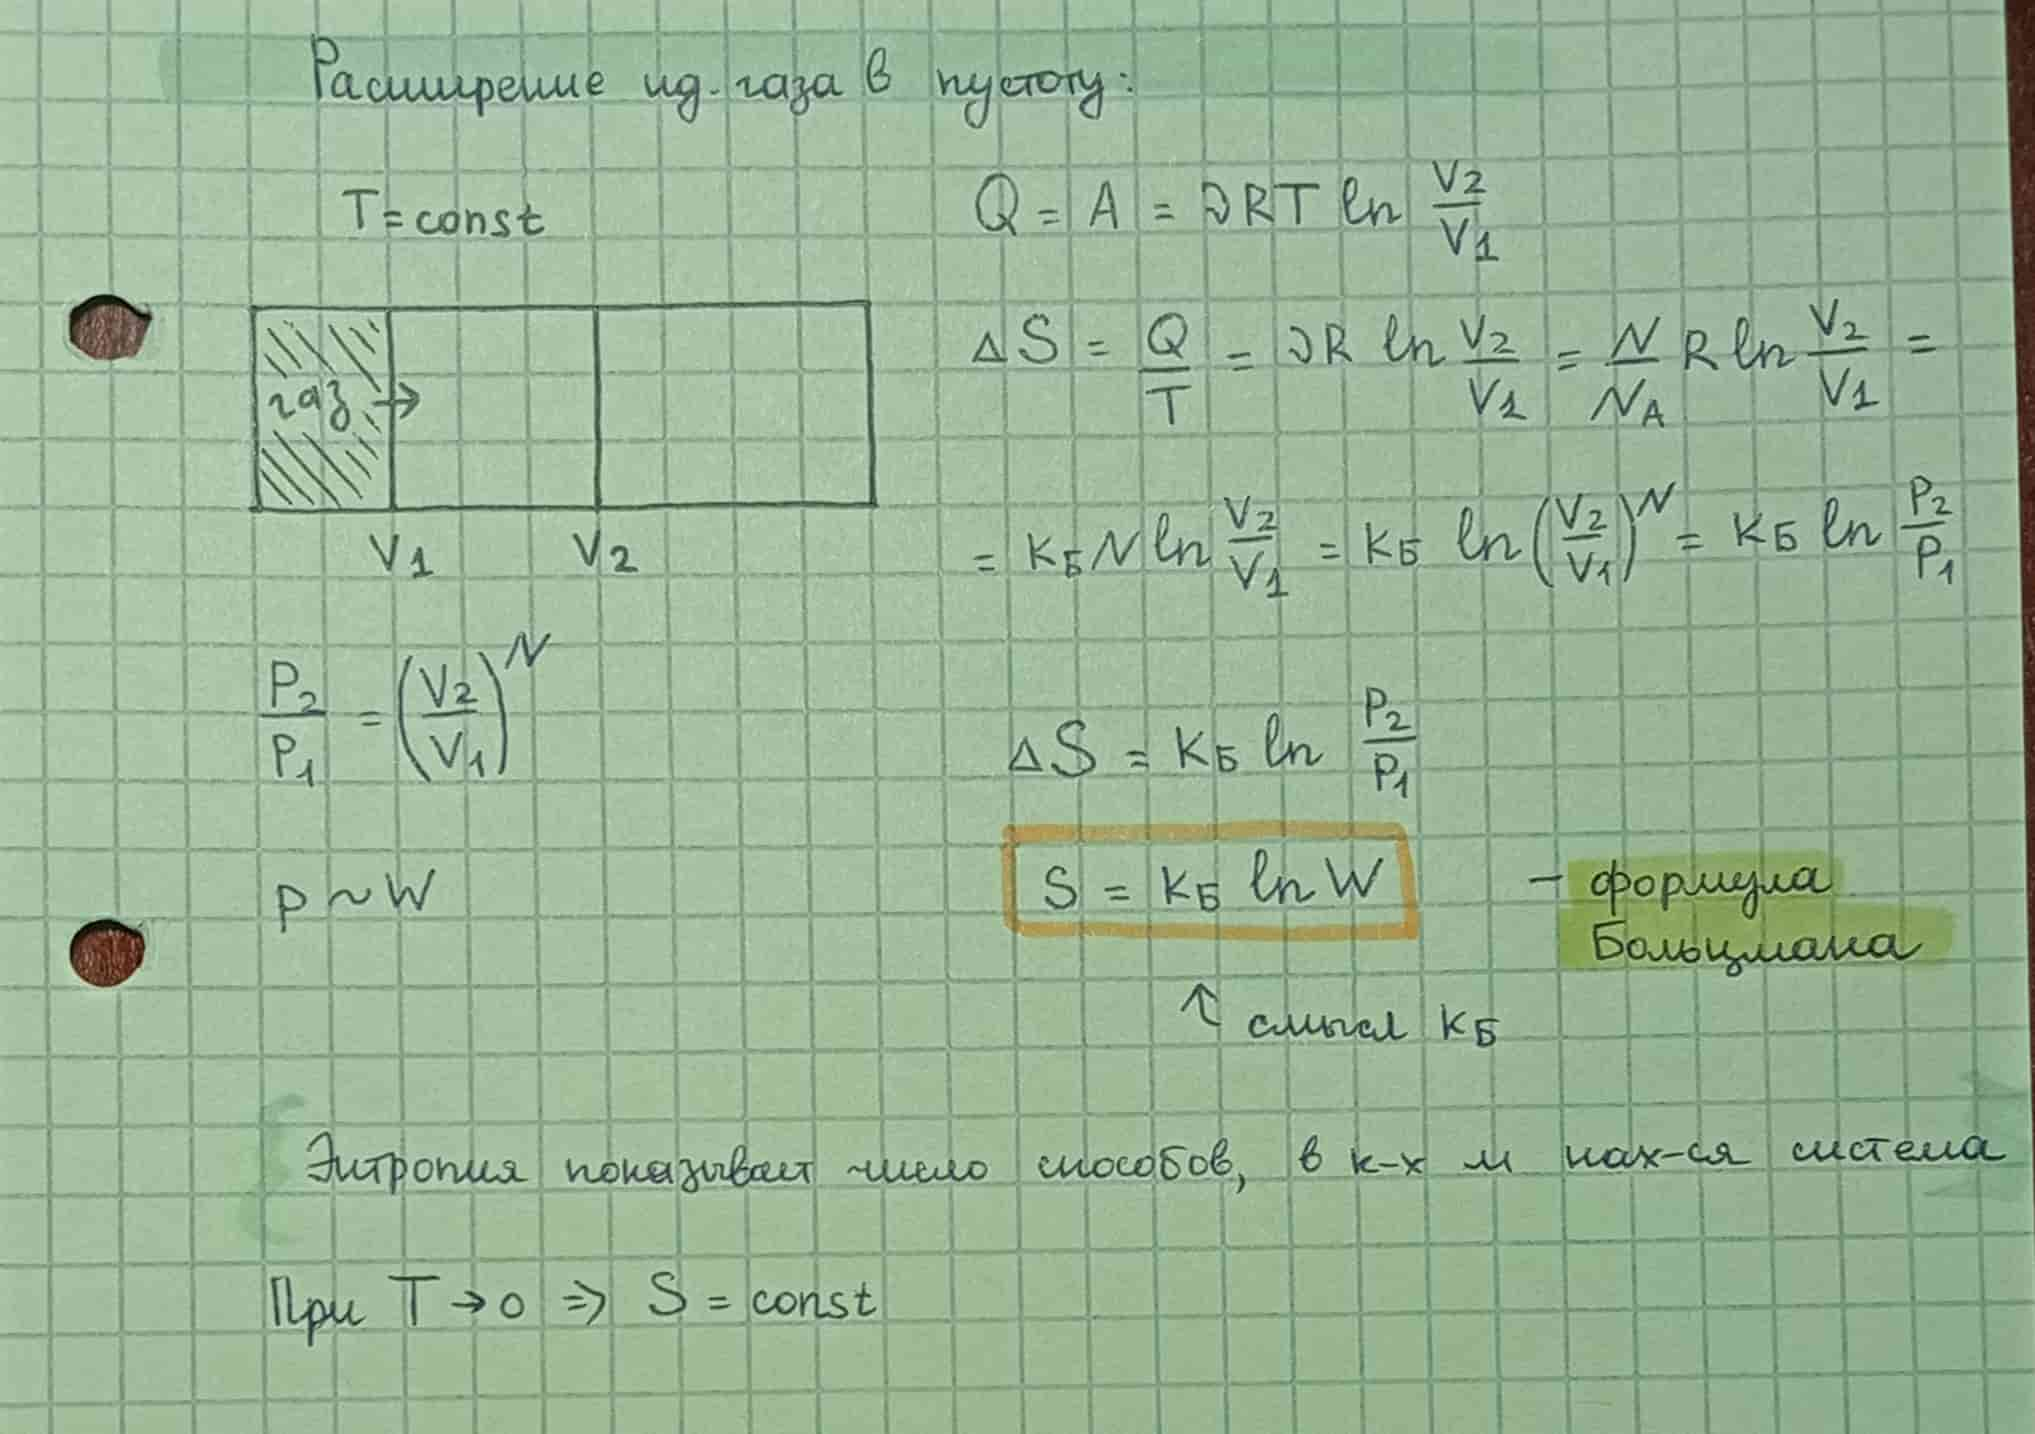 Расширение ид. газа в пустоту:
T = const
Q = A = νRT ln V2/V1
газ
V1 V2
ΔS = Q/T = νR ln V2/V1 = N/NA R ln V2/V1 =
= kБ N ln V2/V1 = kБ ln (V2/V1)^N = kБ ln P2/P1
P2/P1 = (V2/V1)^N
ΔS = kБ ln P2/P1
p ~ W
S = kБ ln W
– формула
Больцмана
↑ смысл kБ
Энтропия показывает число способов, в к-х м нах-ся система
При T → 0 ⇒ S = const